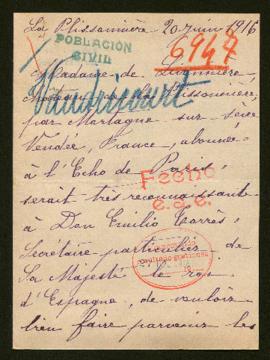 La Plissonnière 20 juin 1916
POBLACIÓN
CIVIL
6947
Madame de
par Mortagne sur Sèvre
Vendée, France, abonnée
à l'Echo de Paris,
Fecho
serait très reconnaissante
à Don Emilio Torrès,
Secrétaire particulier de
Sa Majesté le roi
d'Espagne, de vouloir
bien faire parvenir les